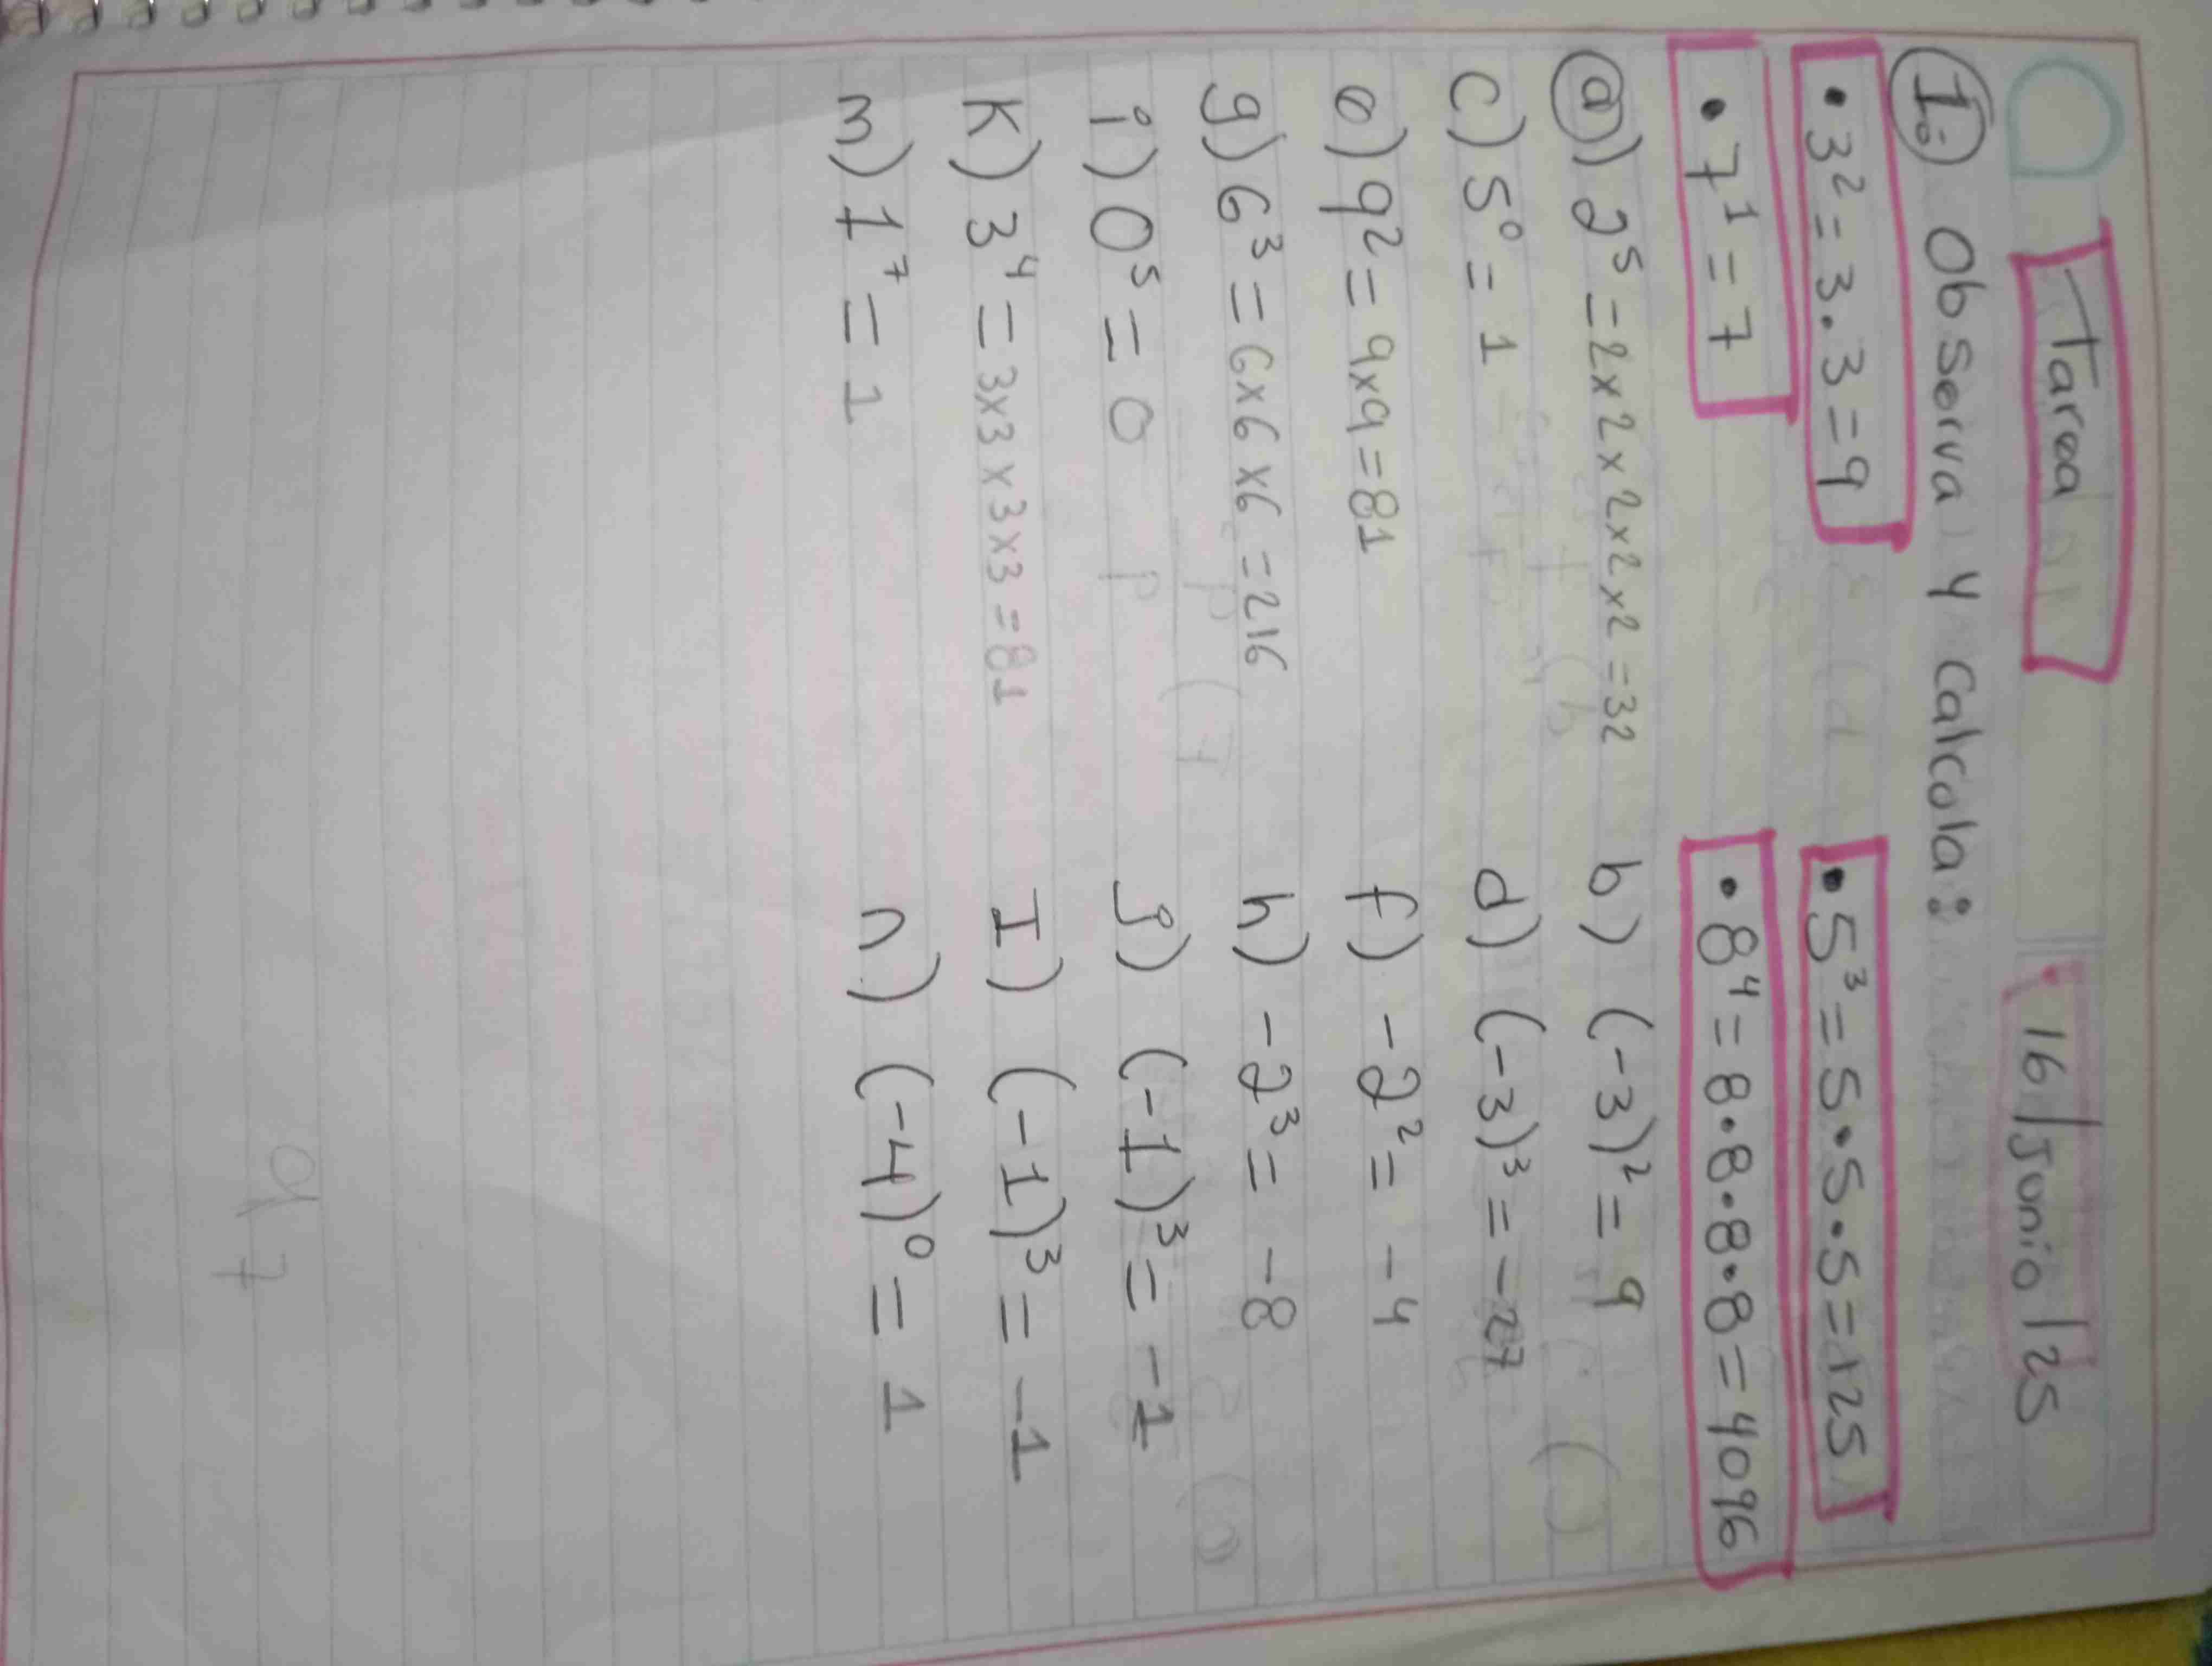 Tarea 16/Junio/25
I. Observa y Calcula:
• 3² = 3.3 = 9 • 5³ = 5•5•5 = 125
• 7¹ = 7 • 8⁴ = 8•8•8•8 = 4096
a) 2⁵ = 2x2x2x2x2 = 32 b) (-3)² = 9
c) 5⁰ = 1 d) (-3)³ = -27
e) 9² = 9x9 = 81 f) -2² = -4
g) 6³ = 6x6x6 = 216 h) -2³ = -8
i) 0⁵ = 0 J) (-1)³ = -1
K) 3⁴ = 3x3x3x3 = 81 I) (-1)³ = -1
m) 1⁷ = 1 n) (-4)⁰ = 1